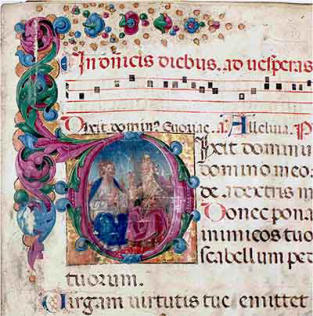 In dnicis diebus. ad uesperas
Dixit domin9 Euouae. a. Alleluia. P
Dixit dominu
domino meo
de a dextris m
Donec pona
inimicos tuo
scabellum ped
tuorum.
Uirgam uirtutis tue emittet